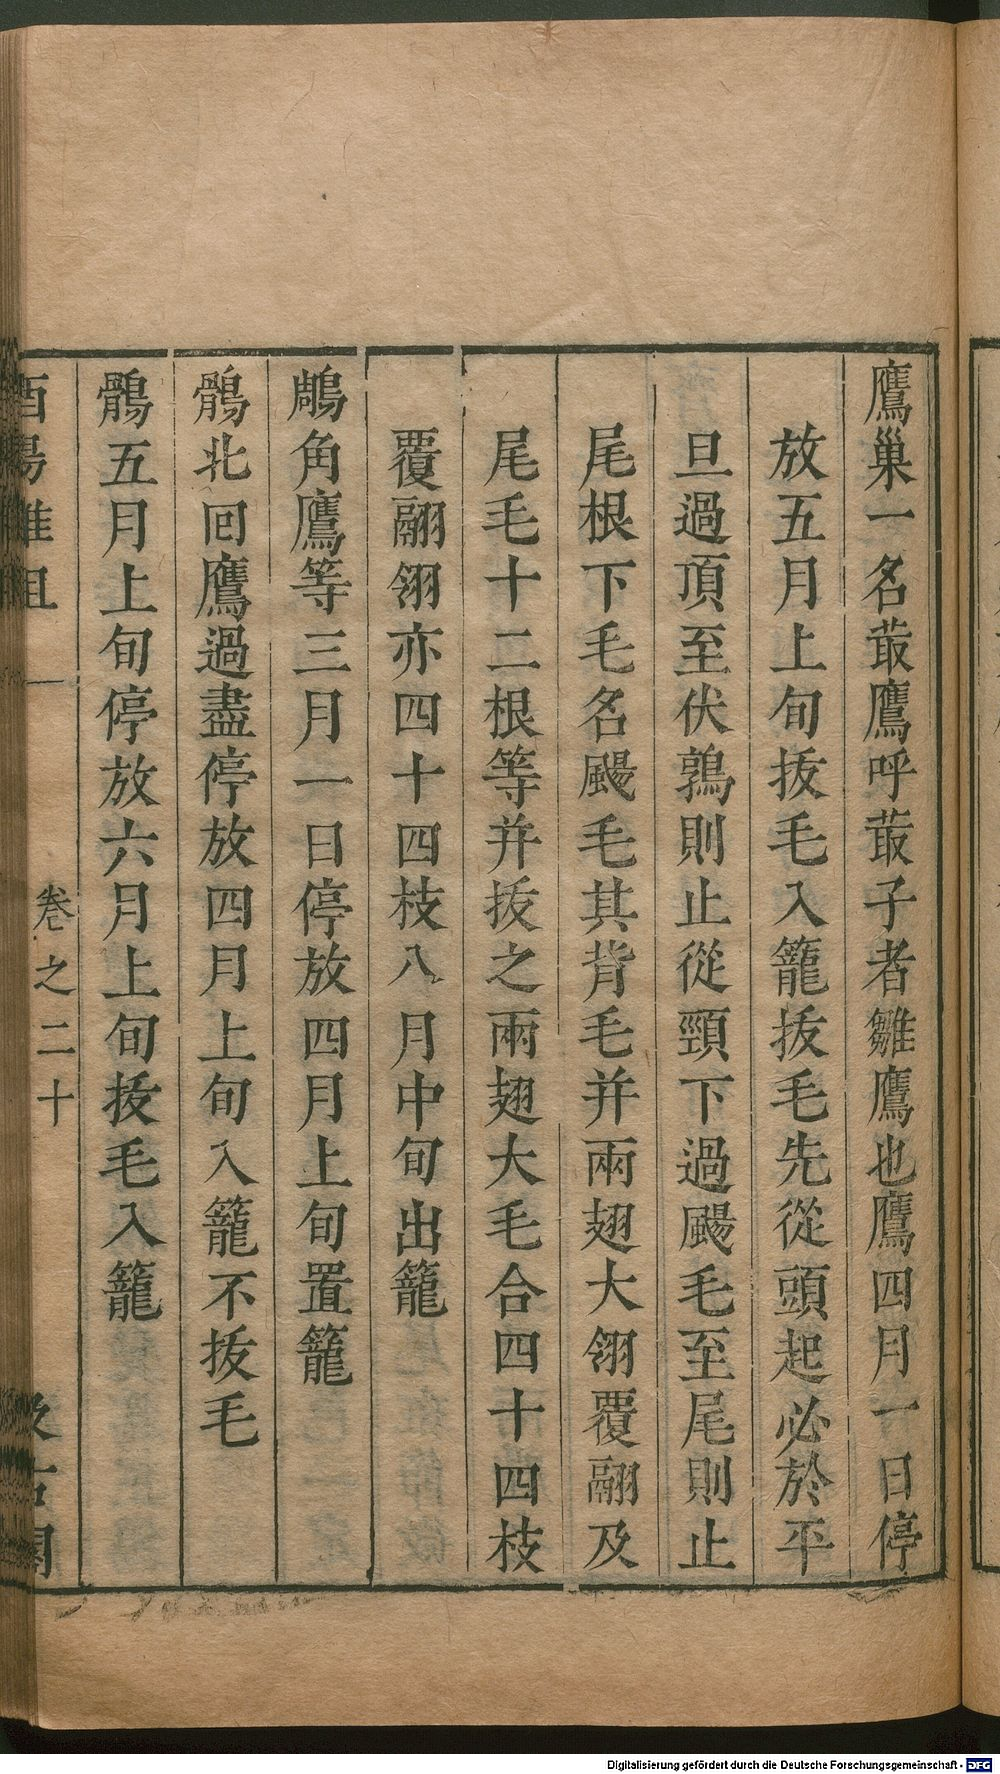 鷹巢一名菆鷹呼菆子者雛鷹也鷹四月一日停
放五月上旬拔毛入籠拔毛先從頭起必於平
旦過頂至伏鶉則止從頸下過颺毛至尾則止
尾根下毛名颺毛其背毛并兩翅大翎覆翮及
尾毛十二根等并拔之兩翅大毛合四十四枝
覆翮翎亦四十四枝八月中旬出籠
鵰角鷹等三月一日停放四月上旬置籠
鶻北回鷹過盡停放四月上旬入籠不拔毛
鶻五月上旬停放六月上旬拔毛入籠
酉陽雜俎 卷之二十 一 汲古閣
Digitalisierung gefördert durch die Deutsche Forschungsgemeinschaft - DFG